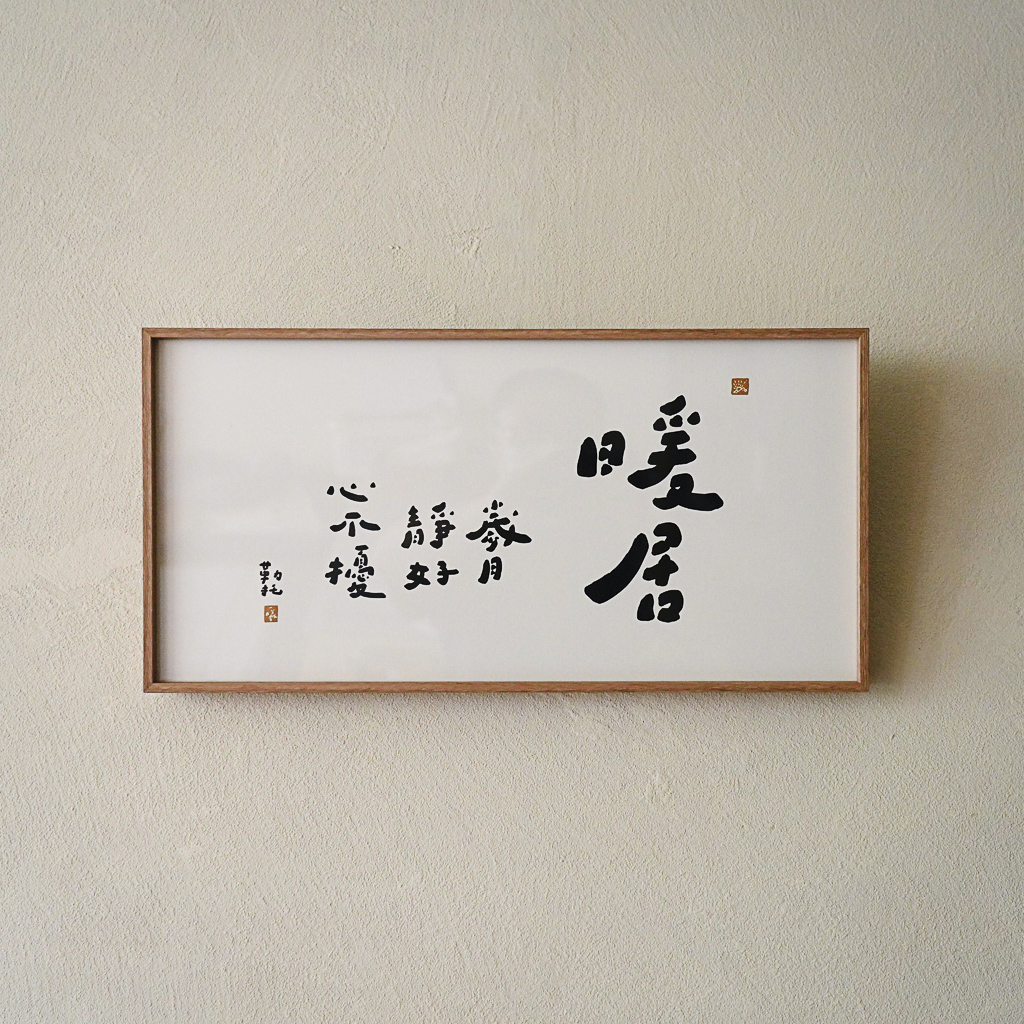 暖居
歲月
靜好
心不擾
勤耘